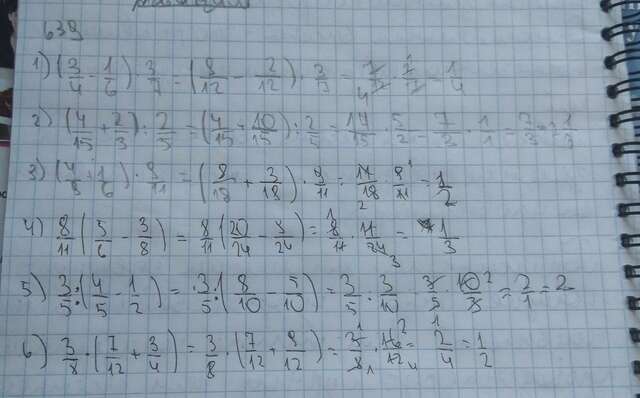 639
1) (3/4 - 1/6) · 3/7 = (9/12 - 2/12) · 3/7 = 7/12 · 3/7 = 1/4
2) (4/15 + 2/3) : 2/5 = (4/15 + 10/15) : 2/5 = 14/15 · 5/2 = 7/3 · 1/1 = 7/3 = 2 1/3
3) (4/9 + 1/6) · 9/11 = (8/18 + 3/18) · 9/11 = 11/18 · 9/11 = 1/2
4) 8/11 (5/6 - 3/8) = 8/11 (20/24 - 9/24) = 8/11 · 11/24 = 1/3
5) 3/5 : (4/5 - 1/2) = 3/5 : (8/10 - 5/10) = 3/5 : 3/10 = 3/5 · 10/3 = 2/1 = 2
6) 3/8 · (7/12 + 3/4) = 3/8 · (7/12 + 9/12) = 3/8 · 16/12 = 2/4 = 1/2